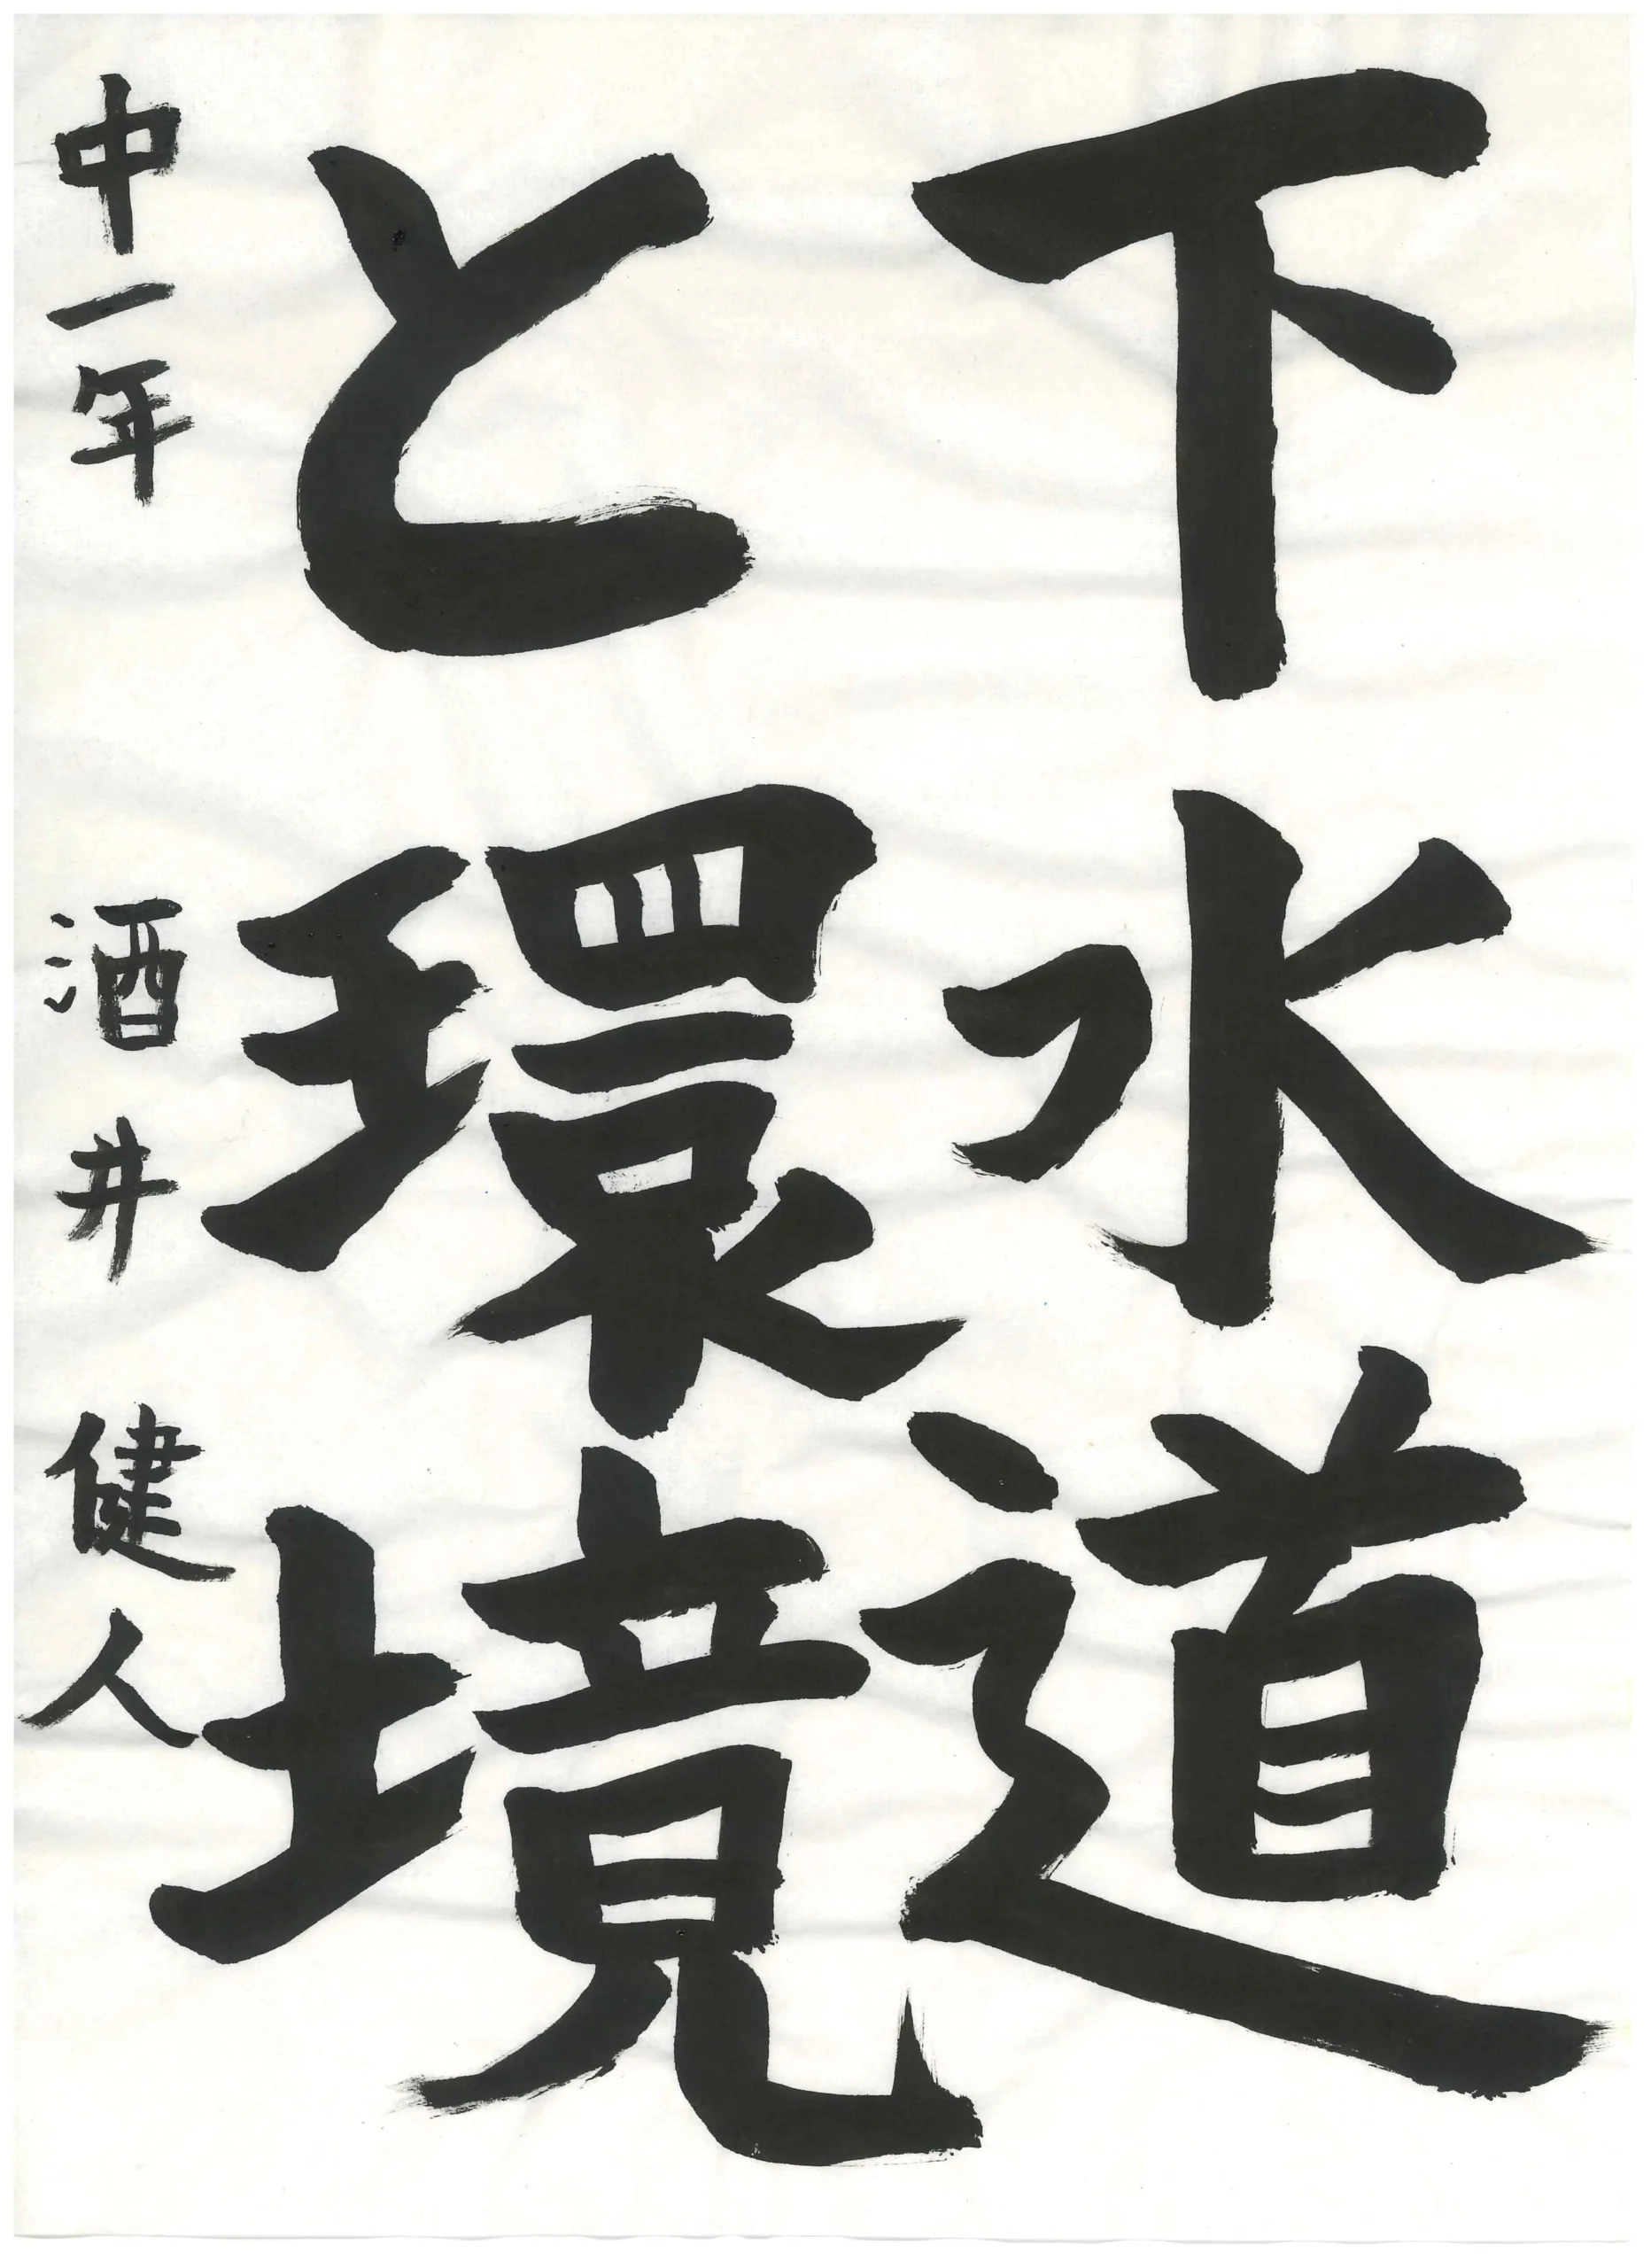 下水道
と環境
中一年 酒井健人